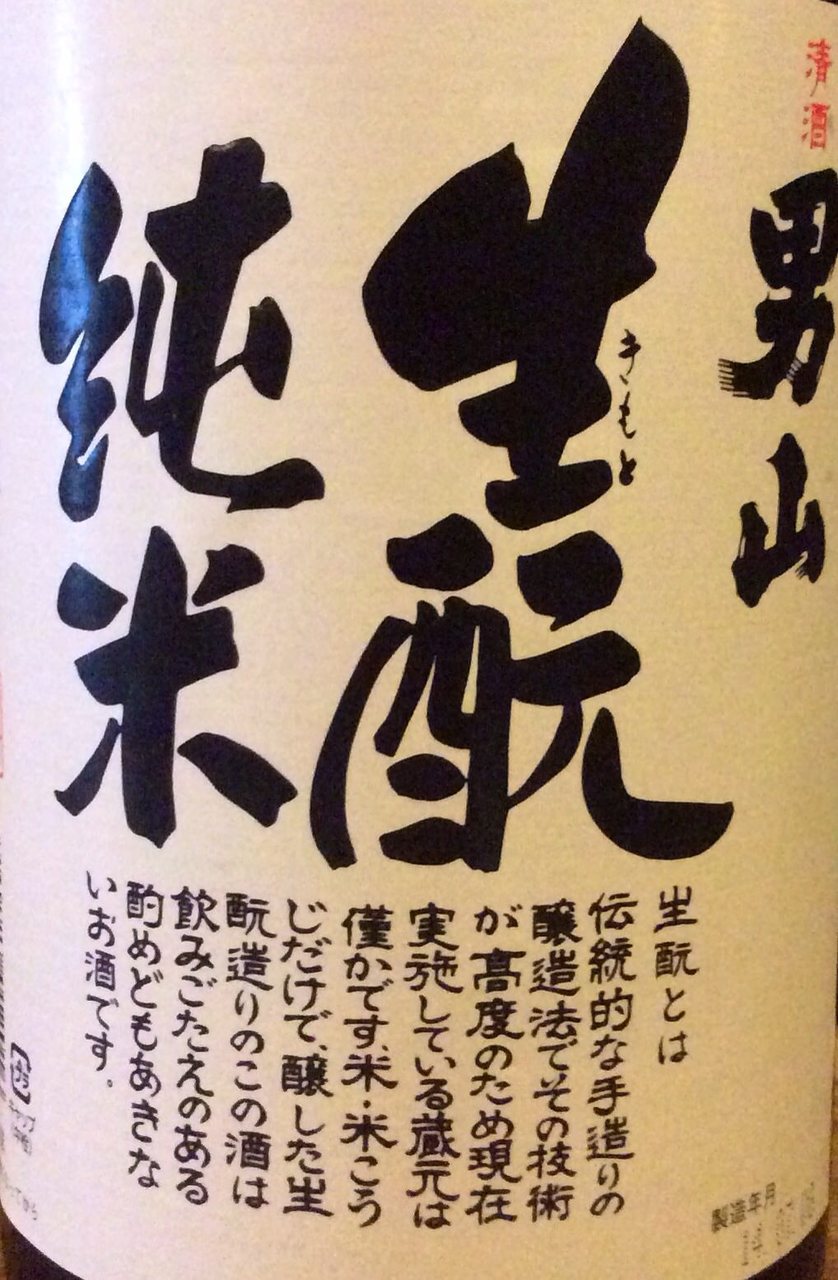 清酒
男山
生酛
きもと
純米
生酛とは
伝統的な手造りの
醸造法でその技術
が高度のため現在
実施している蔵元は
僅かです。米・米こう
じだけで、醸した生
酛造りのこの酒は
飲みごたえのある
酌めどもあきな
いお酒です。
製造年月